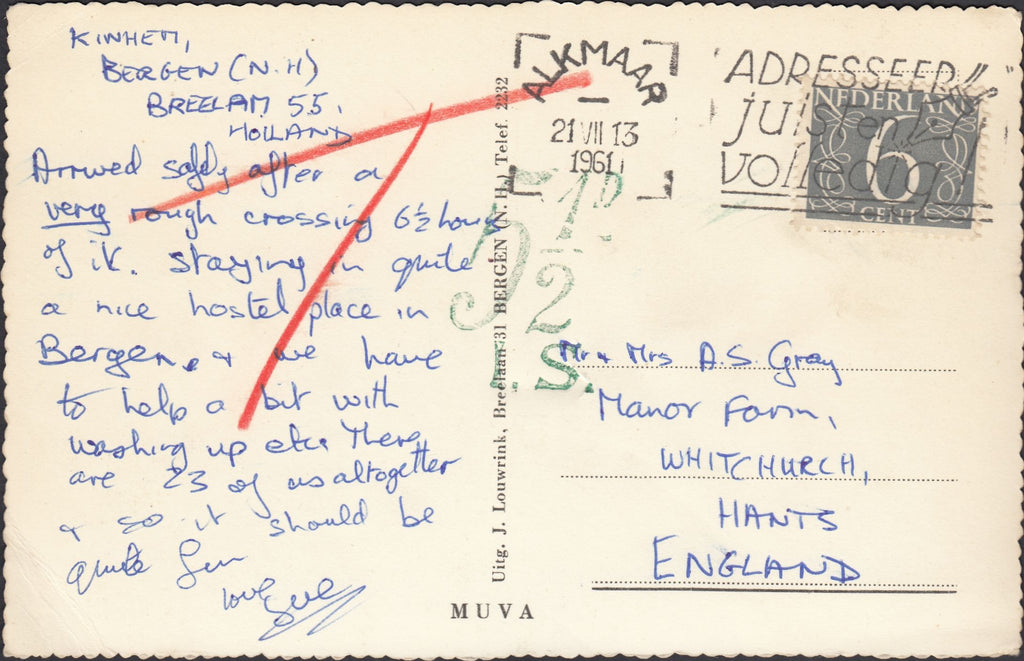 KINHEM,
BERGEN (N.H)
BREELAAN 55.
HOLLAND
Arrived safely after a
very rough crossing 6½ hours
of it. Staying in quite
a nice hostel place in
Bergen, & we have
to help a bit with
washing up etc. There
are 23 of us altogether
& so it should be
quite fun
love Sue
Uitg. J. Louwrink, Breelaan 31 BERGEN (N.H.) Telef. 2232
MUVA
ALKMAAR
21 VII 13
1961
ADRESSEER
juist en
volledig
NEDERLAND
6
CENT
5½D
T.S.
Mr & Mrs A.S. Gray
Manor Farm,
WHITCHURCH,
HANTS
ENGLAND